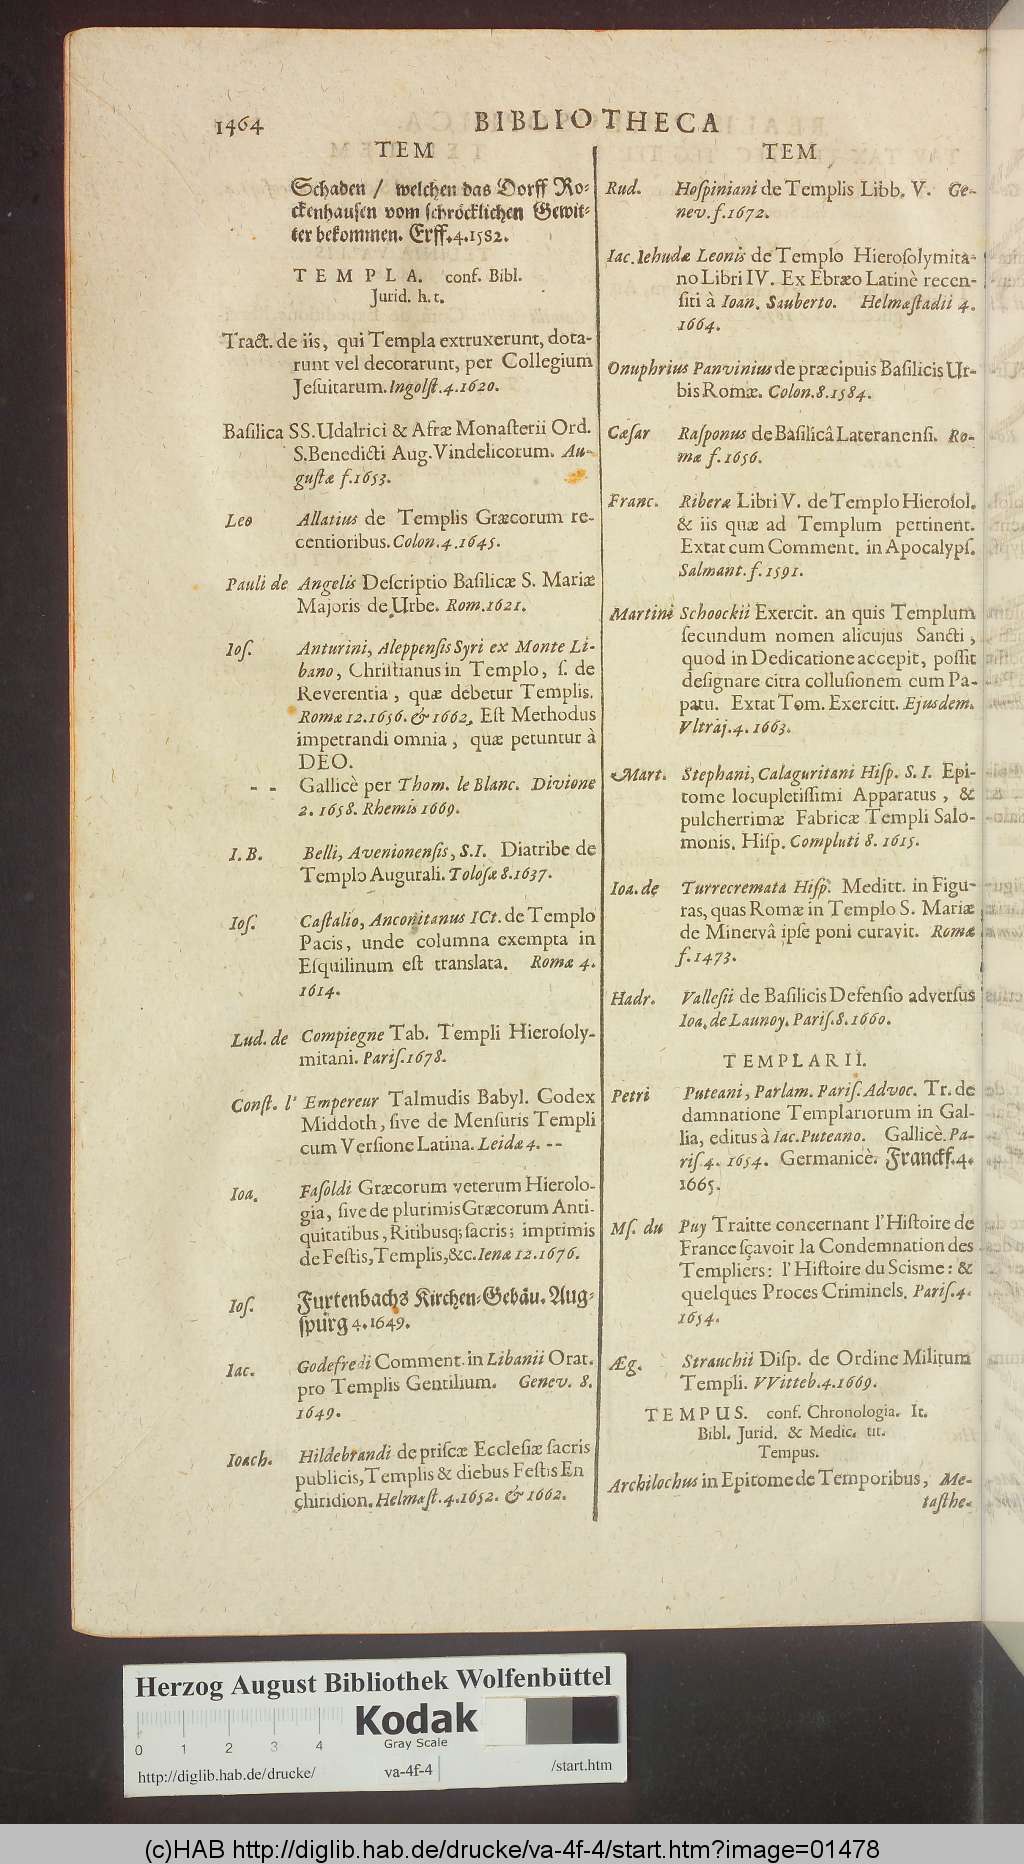 1464
BIBLIOTHECA
TEM
Schaden / welchen das Dorff Ro-
ckenhausen vom schröcklichen Gewit-
ter bekommen. Erff. 4. 1582.
TEMPLA. conf. Bibl.
Jurid. h. t.
Tract. de iis, qui Templa extruxerunt, dota-
runt vel decorarunt, per Collegium
Jeſuitarum. Ingolſt. 4. 1620.
Baſilica SS. Udalrici & Afræ Monaſterii Ord.
S. Benedicti Aug. Vindelicorum. Au-
guſtæ f. 1653.
Leo Allatius de Templis Græcorum re-
centioribus. Colon. 4. 1645.
Pauli de Angelis Deſcriptio Baſilicæ S. Mariæ
Majoris de Urbe. Rom. 1621.
Ioſ. Anturini, Aleppenſis Syri ex Monte Li-
bano, Chriſtianus in Templo, ſ. de
Reverentia, quæ debetur Templis.
Romæ 12. 1656. & 1662. Eſt Methodus
impetrandi omnia, quæ petuntur à
DEO.
- - Gallicè per Thom. le Blanc. Divione
2. 1658. Rhemis 1669.
I. B. Belli, Avenionenſis, S. I. Diatribe de
Templo Augurali. Toloſæ 8. 1637.
Ioſ. Caſtalio, Anconitanus ICt. de Templo
Pacis, unde columna exempta in
Eſquilinum eſt translata. Romæ 4.
1614.
Lud. de Compiegne Tab. Templi Hieroſoly-
mitani. Pariſ. 1678.
Conſt. l' Empereur Talmudis Babyl. Codex
Middoth, ſive de Menſuris Templi
cum Verſione Latina. Leidæ 4. --
Ioa. Faſoldi Græcorum veterum Hierolo-
gia, ſive de plurimis Græcorum Anti-
quitatibus, Ritibusq; ſacris; imprimis
de Feſtis, Templis, &c. Ienæ 12. 1676.
Ioſ. Furtenbachs Kirchen-Gebäu. Aug-
ſpürg 4. 1649.
Iac. Godefredi Comment. in Libanii Orat.
pro Templis Gentilium. Genev. 8.
1649.
Ioach. Hildebrandi de priſcæ Eccleſiæ ſacris
publicis, Templis & diebus Feſtis En
chiridion. Helmæſt. 4. 1652. & 1662.
TEM
Rud. Hoſpiniani de Templis Libb. V. Ge-
nev. f. 1672.
Iac. Iehudæ Leonis de Templo Hieroſolymita-
no Libri IV. Ex Ebræo Latinè recen-
ſiti à Ioan. Sauberto. Helmæſtadii 4.
1664.
Onuphrius Panvinius de præcipuis Baſilicis Ur-
bis Romæ. Colon. 8. 1584.
Cæſar Raſponus de Baſilicâ Lateranenſi. Ro-
mæ f. 1656.
Franc. Riberæ Libri V. de Templo Hieroſol.
& iis quæ ad Templum pertinent.
Extat cum Comment. in Apocalypſ.
Salmant. f. 1591.
Martini Schoockii Exercit. an quis Templum
ſecundum nomen alicujus Sancti,
quod in Dedicatione accepit, poſſit
deſignare citra colluſionem cum Pa-
patu. Extat Tom. Exercitt. Ejusdem.
Vltraj. 4. 1663.
Mart. Stephani, Calaguritani Hiſp. S. I. Epi-
tome locupletiſſimi Apparatus, &
pulcherrimæ Fabricæ Templi Salo-
monis. Hiſp. Compluti 8. 1615.
Ioa. de Turrecremata Hiſp. Meditt. in Figu-
ras, quas Romæ in Templo S. Mariæ
de Minervâ ipſe poni curavit. Romæ
f. 1473.
Hadr. Valleſii de Baſilicis Defenſio adverſus
Ioa. de Launoy. Pariſ. 8. 1660.
TEMPLARII.
Petri Puteani, Parlam. Pariſ. Advoc. Tr. de
damnatione Templariorum in Gal-
lia, editus à Iac. Puteano. Gallicè. Pa-
riſ 4. 1654. Germanicè. Franckf. 4.
1665.
Mſ. du Puy Traitte concernant l'Hiſtoire de
France ſçavoir la Condemnation des
Templiers: l'Hiſtoire du Scisme: &
quelques Proces Criminels. Pariſ. 4.
1654.
Æg. Strauchii Diſp. de Ordine Militum
Templi. VVitteb. 4. 1669.
TEMPUS. conf. Chronologia. It.
Bibl. Jurid. & Medic. tit.
Tempus.
Archilochus in Epitome de Temporibus, Me-
taſthe-
Herzog August Bibliothek Wolfenbüttel
Kodak
Gray Scale
0 1 2 3 4
http://diglib.hab.de/drucke/ va-4f-4 /start.htm
(c)HAB http://diglib.hab.de/drucke/va-4f-4/start.htm?image=01478